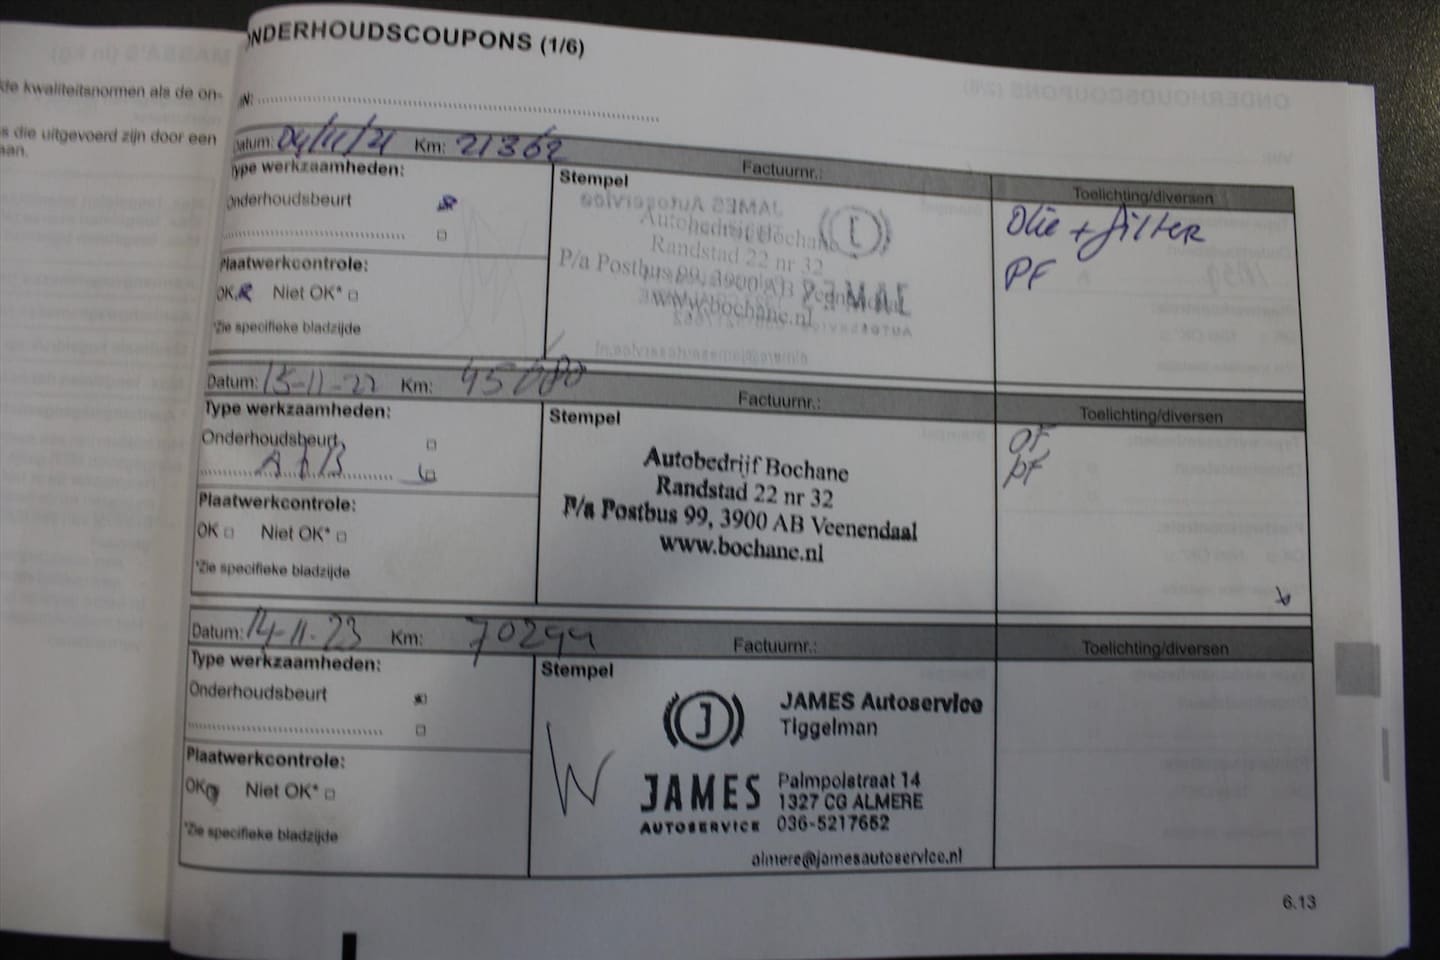 ONDERHOUDSCOUPONS (1/6)
de kwaliteitsnormen als de on-
s die uitgevoerd zijn door een
aan.
Datum: 04/11/21 Km: 21362 Factuurnr.: Toelichting/diversen
Type werkzaamheden:
Stempel
Onderhoudsbeurt
Olie + filter
PF
Autobedrijf Bochane
Randstad 22 nr 32
P/a Postbus 99, 3900 AB Veenendaal
www.bochane.nl
Plaatwerkcontrole:
OK Niet OK*
*Zie specifieke bladzijde
Datum: 15-11-22 Km: 45080 Factuurnr.: Toelichting/diversen
Type werkzaamheden:
Stempel
Onderhoudsbeurt
OF
PF
Autobedrijf Bochane
Randstad 22 nr 32
P/a Postbus 99, 3900 AB Veenendaal
www.bochane.nl
Plaatwerkcontrole:
OK Niet OK*
*Zie specifieke bladzijde
Datum: 14-11-23 Km: 70299 Factuurnr.: Toelichting/diversen
Type werkzaamheden:
Stempel
Onderhoudsbeurt
J
JAMES Autoservice
Tiggelman
JAMES
AUTOSERVICE
Palmpolstraat 14
1327 CG ALMERE
036-5217652
almere@jamesautoservice.nl
Plaatwerkcontrole:
OK Niet OK*
*Zie specifieke bladzijde
6.13